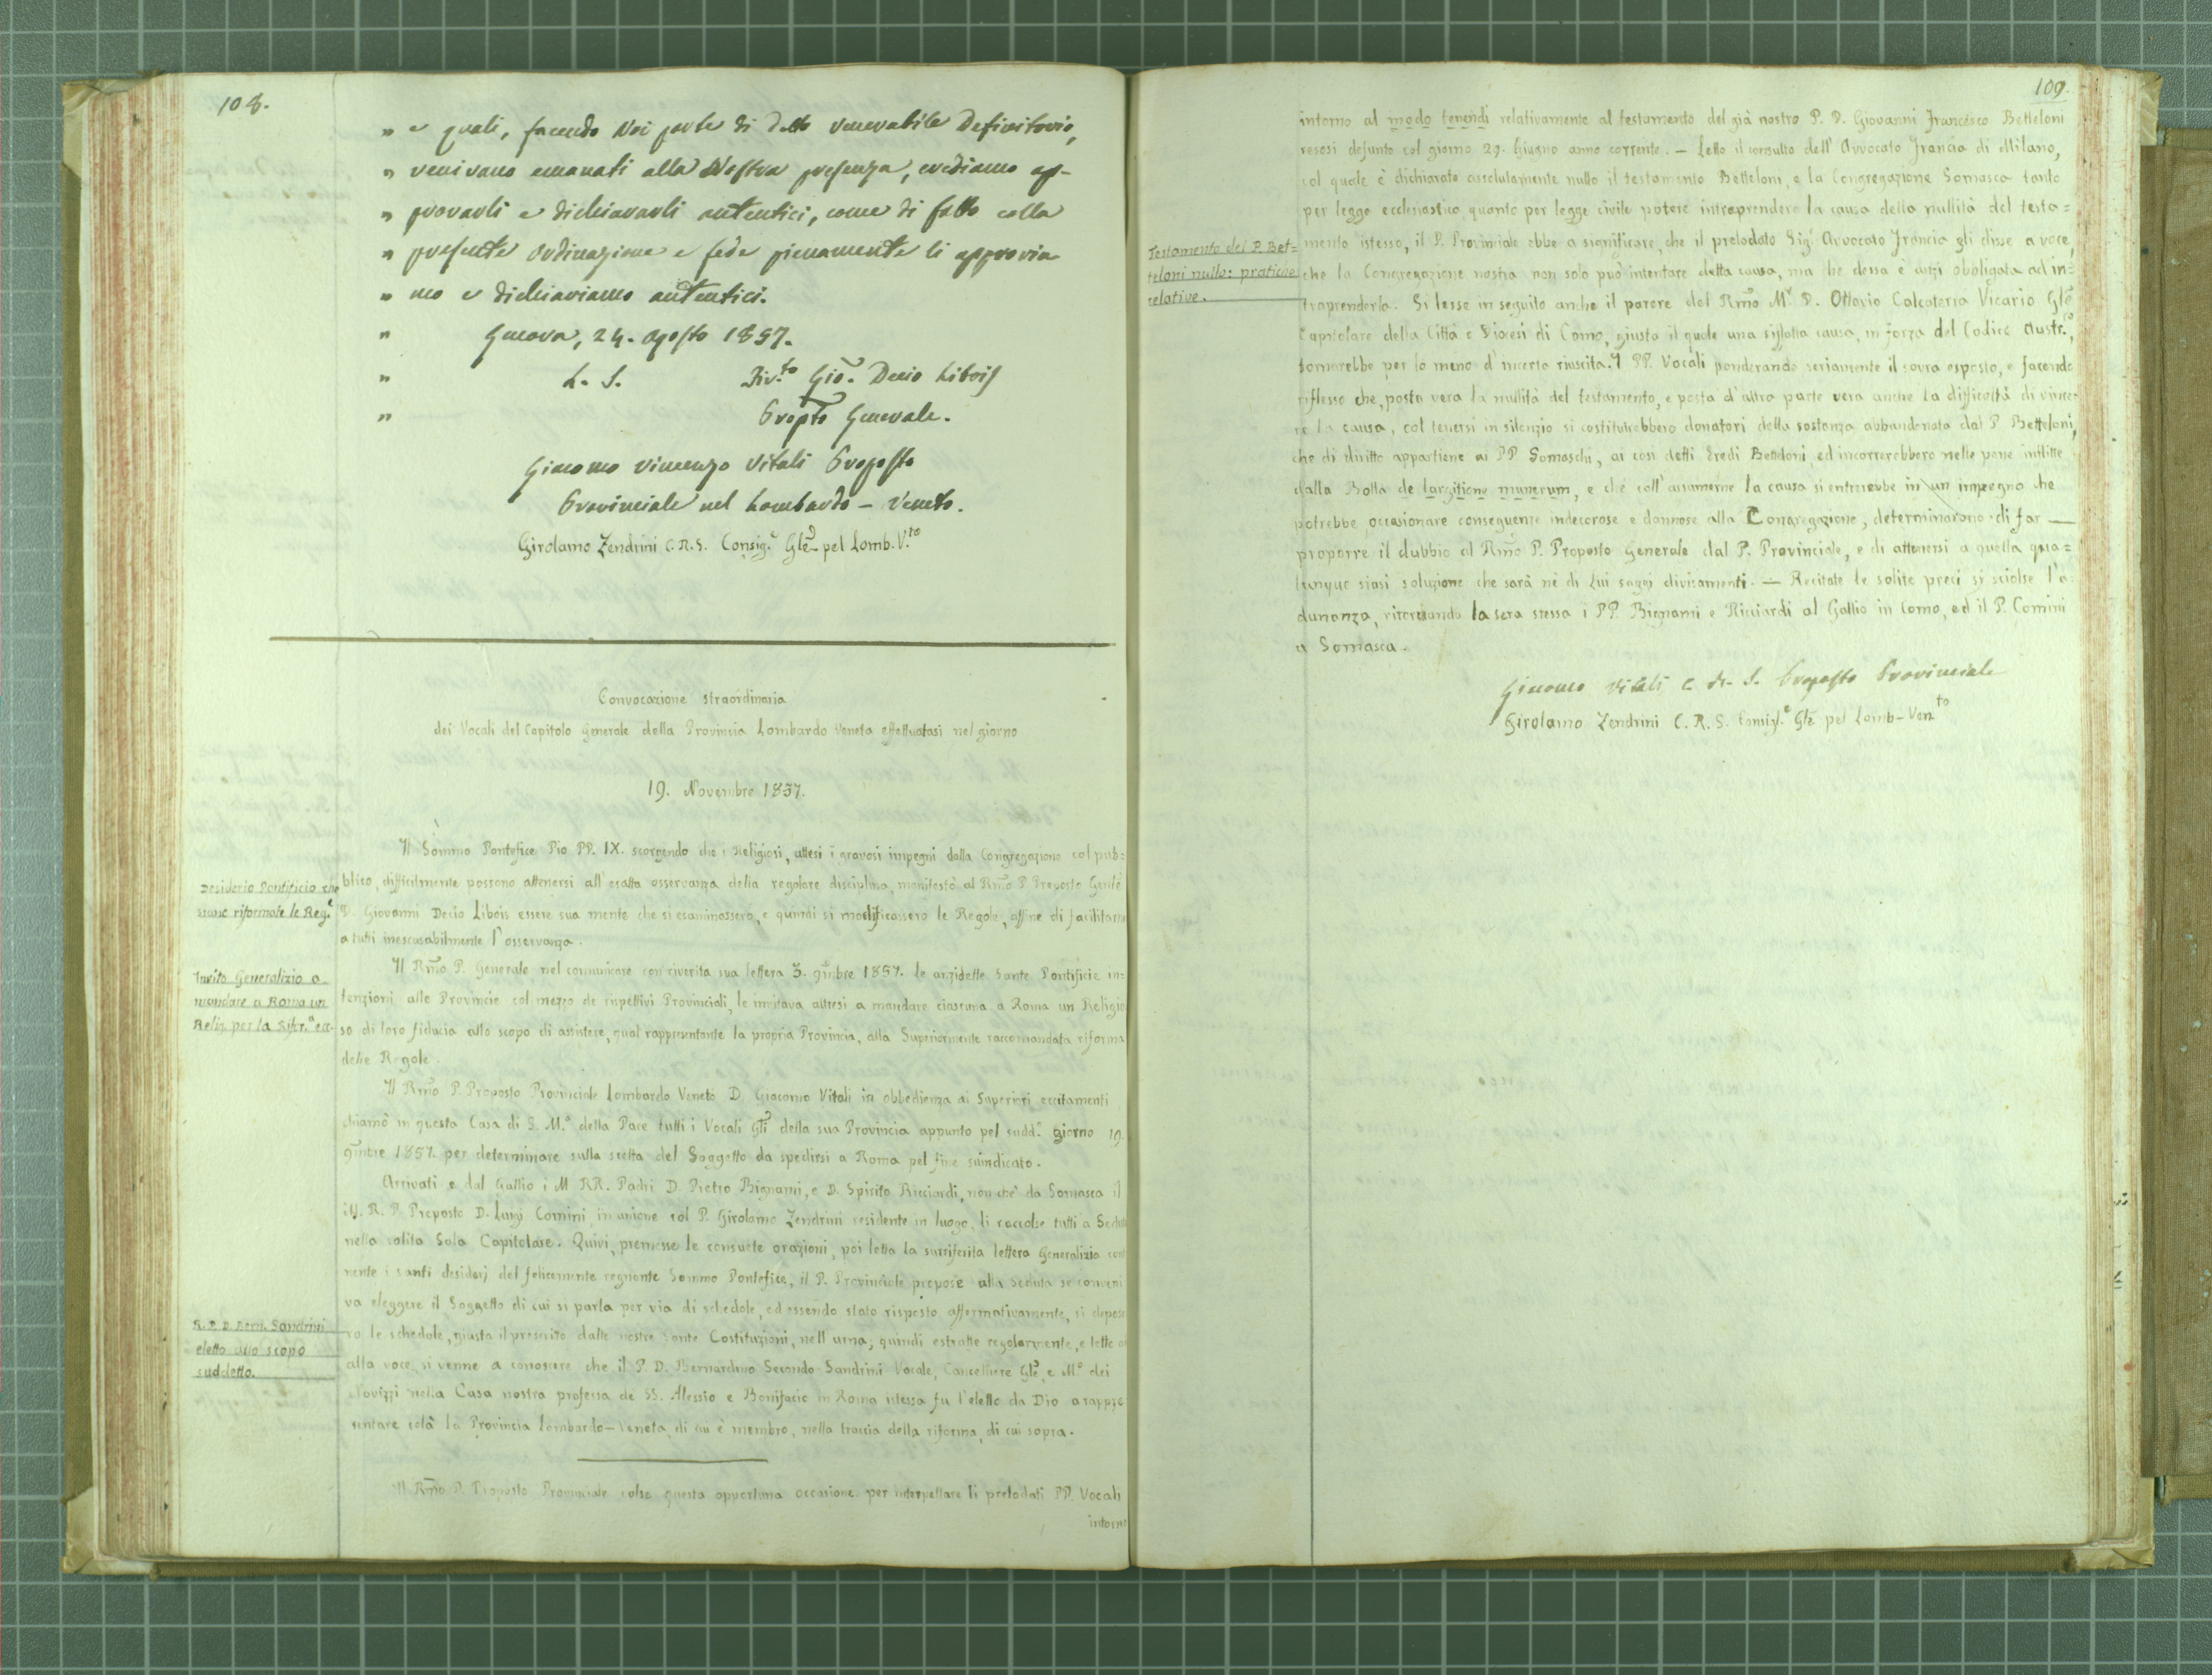 108.
" e quali, facendo Noi parte di detto venerabile Definitorio,
" venivano emanati alla Nostra presenza, crediamo ap-
" provarli e dichiararli autentici, come di fatto colla
" presente ordinazione e fede pienamente li approvia
" mo e dichiariamo autentici.
" Genova, 24. Agosto 1857.
" L. S. Giō. Decio Libois
" Propto Generale.
Giacomo Vincenzo Vitali Proposto
Provinciale nel Lombardo - Veneto.
Girolamo Zendrini C.R.S. Consig.e Glē pel Lomb. V.to
Convocazione straordinaria
dei Vocali del Capitolo Generale della Provincia Lombardo Veneta effettuatasi nel giorno
19. Novembre 1857.
Il Sommo Pontefice Pio PP. IX. scorgendo che i Religiosi, attesi i gravosi impegni della Congregazione col pub=
Desiderio Pontificio che
siano riformate le Reg.e
blico, difficilmente possono attenersi all'esatta osservanza della regolare disciplina, manifestò al Rm̄o P. Preposto Genlē
D. Giovanni Decio Libois essere sua mente che si esaminassero, e quindi si modificassero le Regole, affine di facilitarne
a tutti inescusabilmente l'osservanza.
Invito Generalizio a
mandare a Roma un
Relig. per la
Il Rm̄o P. Generale nel comunicare con riverita sua lettera 3. 9mbre 1857. le anzidette Sante Pontificie in=
tenzioni alle Provincie col mezzo de rispettivi Provinciali, le invitava altresì a mandare ciascuna a Roma un Religio
so di loro fiducia allo scopo di assistere, qual rappresentante la propria Provincia, alla Superiormente raccomandata riforma
delle Regole.
Il Rm̄o P. Proposto Provinciale Lombardo Veneto D. Giacomo Vitali in obbedienza ai Superiori eccitamenti
chiamò in questa Casa di S. M.a della Pace tutti i Vocali Glī della sua Provincia appunto pel sudd.o giorno 19.
9mbre 1857. per determinare sulla scelta del Soggetto da spedirsi a Roma pel fine suindicato.
Arrivati e dal Gallio i M RR. Padri D. Pietro Bignami, e D. Spirito Ricciardi, non che da Somasca il
M. R. P. Preposto D. Luigi Comini, in unione col P. Girolamo Zendrini residente in luogo, li raccolse tutti a Seduta
nella solita Sala Capitolare. Quivi, premesse le consuete orazioni, poi letta la surriferita lettera Generalizia
nente i santi desiderj del felicemente regnante Sommo Pontefice, il P. Provinciale propose alla Seduta se conveni
va eleggere il Soggetto di cui si parla per via di schedole, ed essendo stato risposto affermativamente, si depose
R. P. D. Bern. Sandrini
eletto allo scopo
suddetto.
ro le schedole, giusta il prescritto dalle nostre Sante Costituzioni, nell'urna; quindi estratte regolarmente, e lette
alta voce, si venne a conoscere che il P. D. Bernardino Secondo Sandrini Vocale, Cancelliere Glē, e M.o dei
Novizzi nella Casa nostra professa de SS. Alessio e Bonifacio in Roma istessa fu l'eletto da Dio a rappre
sentare colà la Provincia Lombardo-Veneta, di cui è membro, nella traccia della riforma, di cui sopra.
Il Rm̄o P. Proposto Provinciale colse questa opportuna occasione per interpellare li prelodati PP. Vocali
intorno
109.
intorno al modo tenendi relativamente al testamento del già nostro P. D. Giovanni Francesco Betteloni
resosi defunto col giorno 29. Giugno anno corrente. - Letto il consulto dell'Avvocato Francia di Milano,
col quale è dichiarato assolutamente nullo il testamento Betteloni, e la Congregazione Somasca tanto
per legge ecclesiastica quanto per legge civile potere intraprendere la causa della nullità del testa=
Testamento del P. Bet=
teloni nullo: pratiche
relative.
mento istesso, il P. Provinciale ebbe a significare, che il prelodato Sig.r Avvocato Francia gli disse a voce,
che la Congregazione nostra non solo può intentare detta causa, ma che dessa è anzi obbligata ad in=
traprenderla. Si lesse in seguito anche il parere del Rm̄o M.r D. Ottavio Calcaterra Vicario Glē
Capitolare della Città e Diocesi di Como, giusta il quale una siffatta causa, in forza del Codice Austr.o,
tornerebbe per lo meno d'incerta riuscita. I PP. Vocali ponderando seriamente il sovra esposto, e facendo
riflesso che, posta vera la nullità del testamento, e posta d'altra parte vera anche la difficoltà di vince=
re la causa, col tenersi in silenzio si costituirebbero donatori della sostanza abbandonata dal P. Betteloni,
che di diritto appartiene ai PP. Somaschi, ai così detti Eredi Betteloni, ed incorrerebbero nelle pene inflitte
dalla Bolla de largitione munerum, e che coll'assumerne la causa si entrerebbe in un impegno che
potrebbe occasionare conseguenze indecorose e dannose alla Congregazione, determinarono di far
proporre il dubbio al Rm̄o P. Proposto Generale dal P. Provinciale, e di attenersi a quella qua=
lunque siasi soluzione che sarà ne di Lui saggi divisamenti. - Recitate le solite preci si sciolse l'a=
dunanza, ritornando la sera stessa i PP. Bignami e Ricciardi al Gallio in Como, ed il P. Comini
a Somasca.
Giacomo Vitali C. R. S. Proposto Provinciale
Girolamo Zendrini C. R. S. Consigl.e Glē pel Lomb-Ven.to